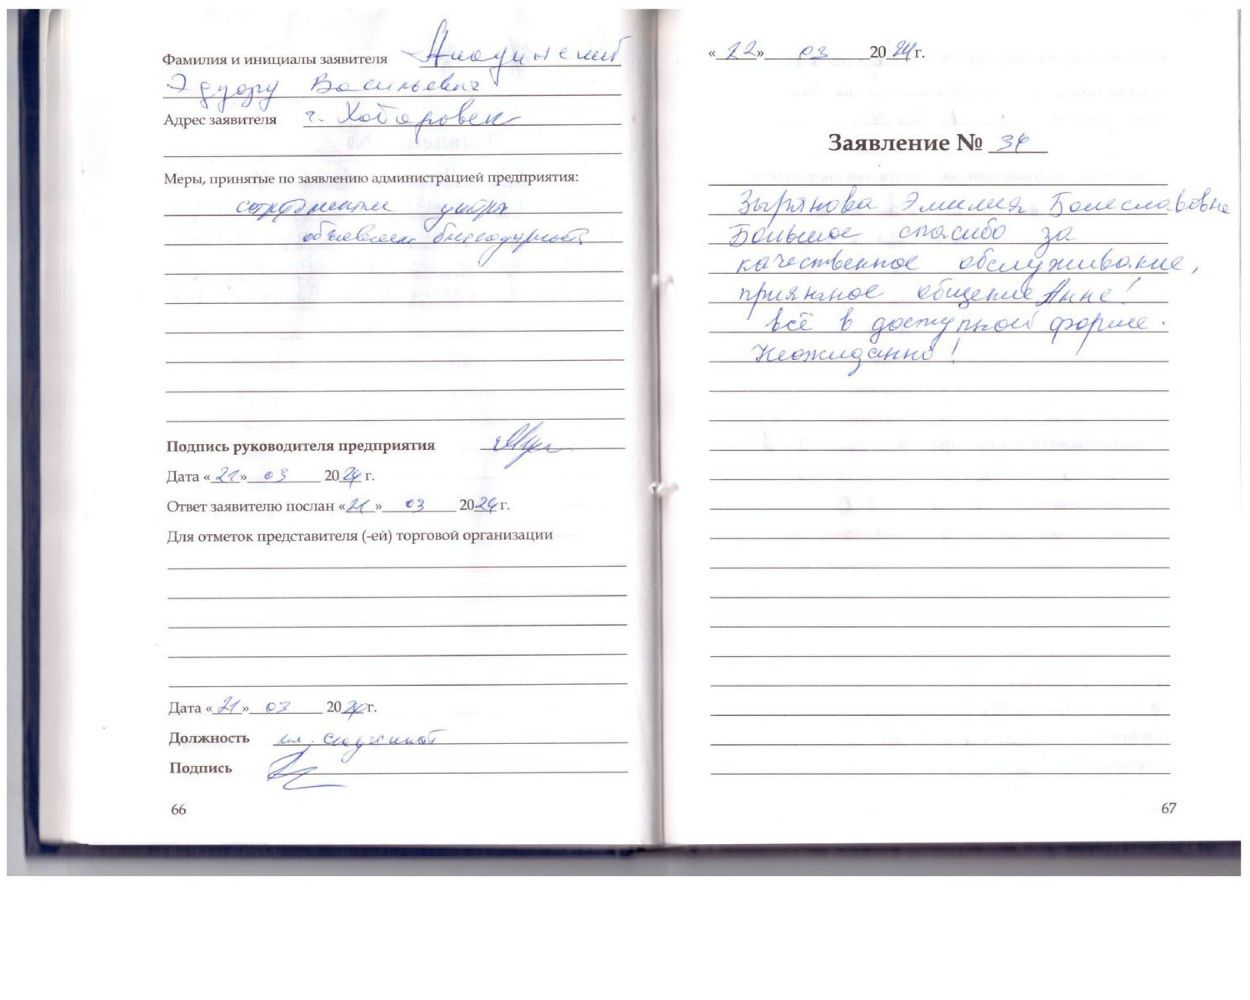 Фамилия и инициалы заявителя
Эдуарду Васильевичу
Адрес заявителя г. Хабаровск
Меры, принятые по заявлению администрацией предприятия:
центра
объявлена благодарность
Подпись руководителя предприятия
Дата «21» 03 2024 г.
Ответ заявителю послан «21» 03 2024 г.
Для отметок представителя (-ей) торговой организации
Дата «21» 03 2024 г.
Должность
Подпись
66
«22» 03 2024 г.
Заявление № 34
Зырянова Эмилия Болеславовна
Большое спасибо за
качественное обслуживание,
приятное общение Анне!
всё в доступной форме.
Неожиданно!
67